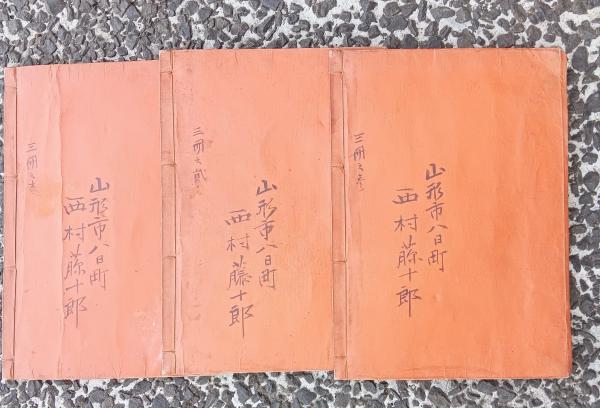 三冊之壱
山形市八日町
西村藤十郎
三冊之貮
山形市八日町
西村藤十郎
三冊之参
山形市八日町
西村藤十郎